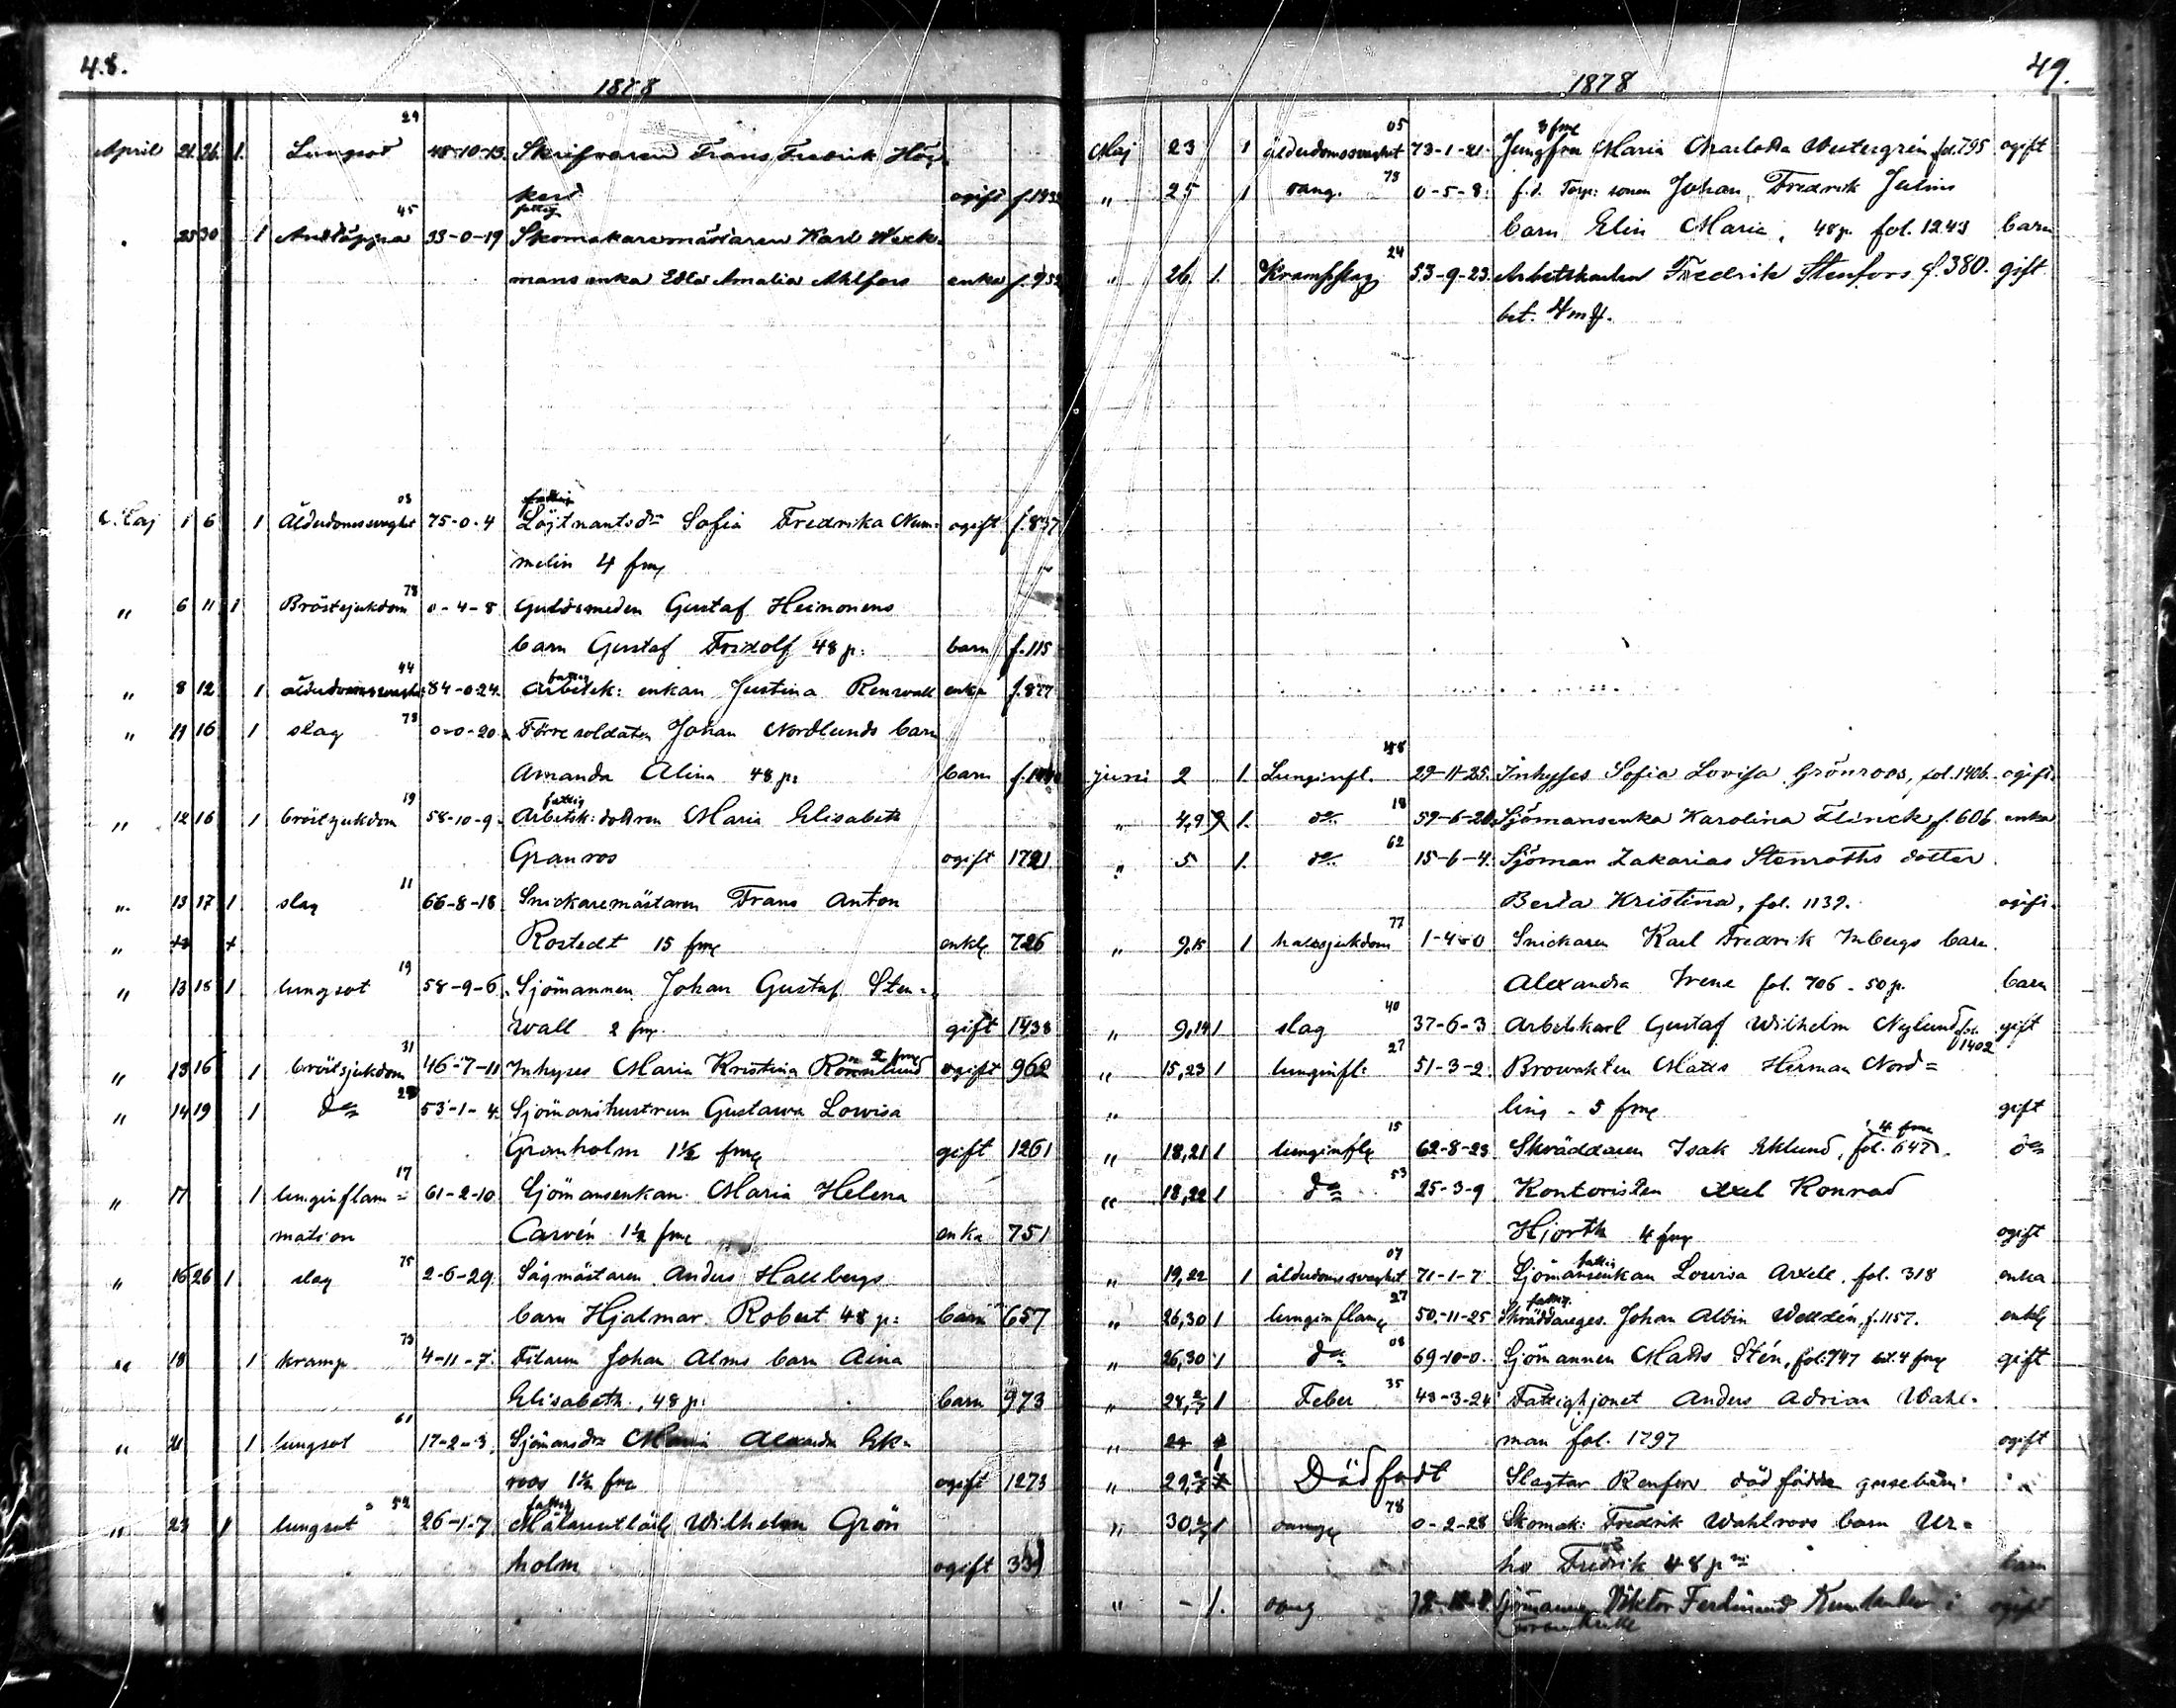 48.
1878
29
April 21 26 1. Lungsot 48-10-13 Skrifvaren Frans Fredrik Hög-
ogift
fattig
45
25 30 1 33-0-19 Skomakaremästaren Karl Weck-
mans enka Edla Amalia Ahlfors enka
fattig
03
Maj 1 6 1 Ålderdomssvaghet 75-0-4 Löjtnantsdr Sofia Fredrika Num- ogift f. 837
melin 4 fmk
78
" 6 11 1 Bröstsjukdom 0-4-8 Guldsmeden Gustaf Heinonens
barn Gustaf Fridolf 48 p: barn f. 115
44 fattig
" 8 12 1 ålderdomssvaghet 84-0-24. Arbetsk: enkan Justina Renvall enka f. 877
78
" 11 16 1 slag 0-0-20 Förre soldaten Johan Nordlunds barn
Amanda Alina 48 p: barn
19 fattig
" 12 16 1 bröstsjukdom 58-10-9 Arbetsk: dottren Maria Elisabeth
Granroos ogift 1721
11
" 13 17 1 slag 66-8-18 Snickaremästaren Frans Anton
" Rostedt 15 fmk enkl 726
19
" 13 18 1 lungsot 58-9-6 Sjömannen Johan Gustaf Sten-
wall 2 fmk gift 1438
31 2 fmk
" 13 16 1 bröstsjukdom 46-7-11 Inhyses Maria Kristina Rönnlund ogift 962
28
" 14 19 1 do 53-1-4 Sjömanshustrun Gustava Lovisa
Granholm 1½ fmk gift 1261
17
" 17 1 lunginflam- 61-2-10 Sjömansenkan Maria Helena
mation Carvén 1½ fmk enka 751
75
" 16 26 1 slag 2-6-29 Sågmästaren Anders Hallbergs
barn Hjalmar Robert 48 p: barn 657
73
" 18 1 kramp 4-11-7 Filaren Johan Alms barn Aina
Elisabeth, 48 p: barn 973
61
" 21 1 lungsot 17-2-3 Sjömansdr Maria Alexandra Ek-
roos 1½ fmk ogift 1273
52 fattig
" 23 1 lungsot 26-1-7 Wilhelm Grön
holm ogift
49.
1878
05 3 fmk
Maj 23 1 ålderdomssvaghet 73-1-21 Jungfru Maria Charlotta Westergrén fol. 795 ogift
78
" 25 1 oang. 0-5-8 f.d. Torp: sonen Johan Fredrik Julins
barn Elin Maria, 48 p. fol. 1243 barn
24
" 26. 1. Krampslag 53-9-23. Arbetskarlen Fredrik Stenfors f. 380. gift
bet. 4 mk.
48
juni 2 1. Lunginfl. 29-11-25. Inhyses Sofia Lovisa Grönroos, fol. 1406. ogift.
18
" 4,9 1. do. Sjömansenka Karolina Flinck f. 606 enka
62
" 5 1. do. 15-6-4. Sjöman Zakarias Stenroths dotter
Berta Kristina, fol. 1139. ogift.
77
" 9,15 1 halssjukdom 1-4-0 Snickaren Karl Fredrik Inbergs barn
Alexandra Irene fol. 706 - 50 p. barn
40
" 9,14 1 slag 37-6-3 Arbetskarl Gustaf Wilhelm Nylund fol. 1402 gift
27
" 15,23 1 lunginfl: 51-3-2 Brovakten Matts Herman Nord-
" ling - 5 fmk gift
15 4 fmk
" 18,21 1 lunginfl 62-8-23 Skräddaren Isak Eklund, fol. 647. do
53
" 18,22 1 do 25-3-9 Kontoristen Axel Konrad
Hjorth 4 fmk ogift
07 fattig
" 19,22 1 ålderdomssvaghet 71-1-7 Sjömansenkan Lovisa Axell, fol. 318 enka
27 fattig
" 26,30 1 lunginflam 50-11-25 Skräddareges. Johan Albin Welldén, f. 1157. enkl
08
" 26,30 1 do 69-10-0 Sjömannen Matts Stén, fol. 747 bet. 4 fmk gift
35
" 28, 2/7 1 Feber 43-3-24 Fattighjonet Anders Adrian Wahl-
" man fol. 1797 ogift
" 29, Dödfödt Slagtar död födda gossebarn
78
" 30, 1 oang 0-2-28 Skomak: Fredrik Wahlroos barn Ur-
ho Fredrik 48 p barn
" - 1. oang Sjömannen Viktor Ferdinand ogift